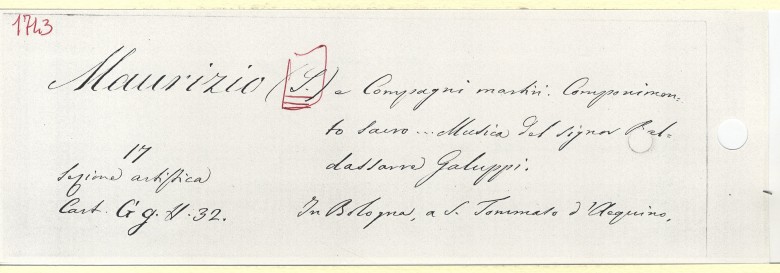 1743
Maurizio (S.) e Compagni martiri. Componimen=
to sacro... Musica del Signor Bal=
dassarre Galuppi.
17
Sezione artistica
Cart. G g. II. 32.
In Bologna, a S. Tommaso d'Aequino,